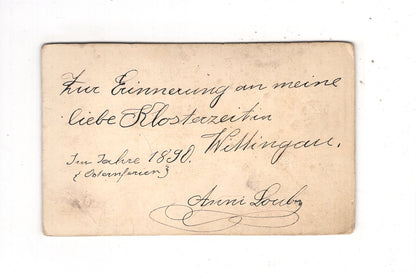 Zur Erinnerung an meine
liebe Klosterzeit in
Wittingau.
Im Jahre 1890.
(Osternferien)
Anni